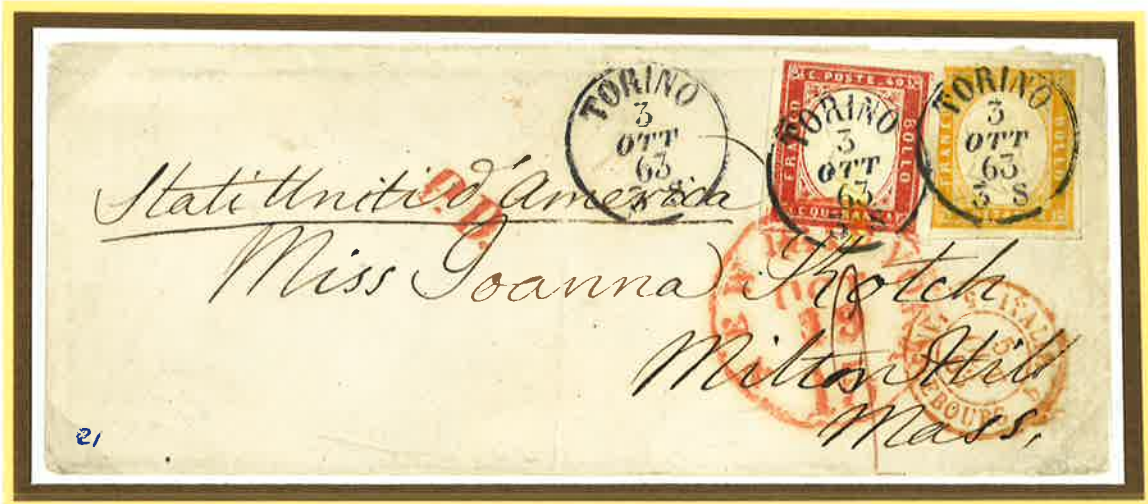 TORINO
3
OTT
63
3 S
C. POSTE. 40
FRANCO
BOLLO
TORINO
3
OTT
63
3 S
TORINO
3
OTT
63
3 S
BOLLO
Stati Uniti d'America
P.D.
Miss Joanna Rotch
Milton Hill
Mass,
21